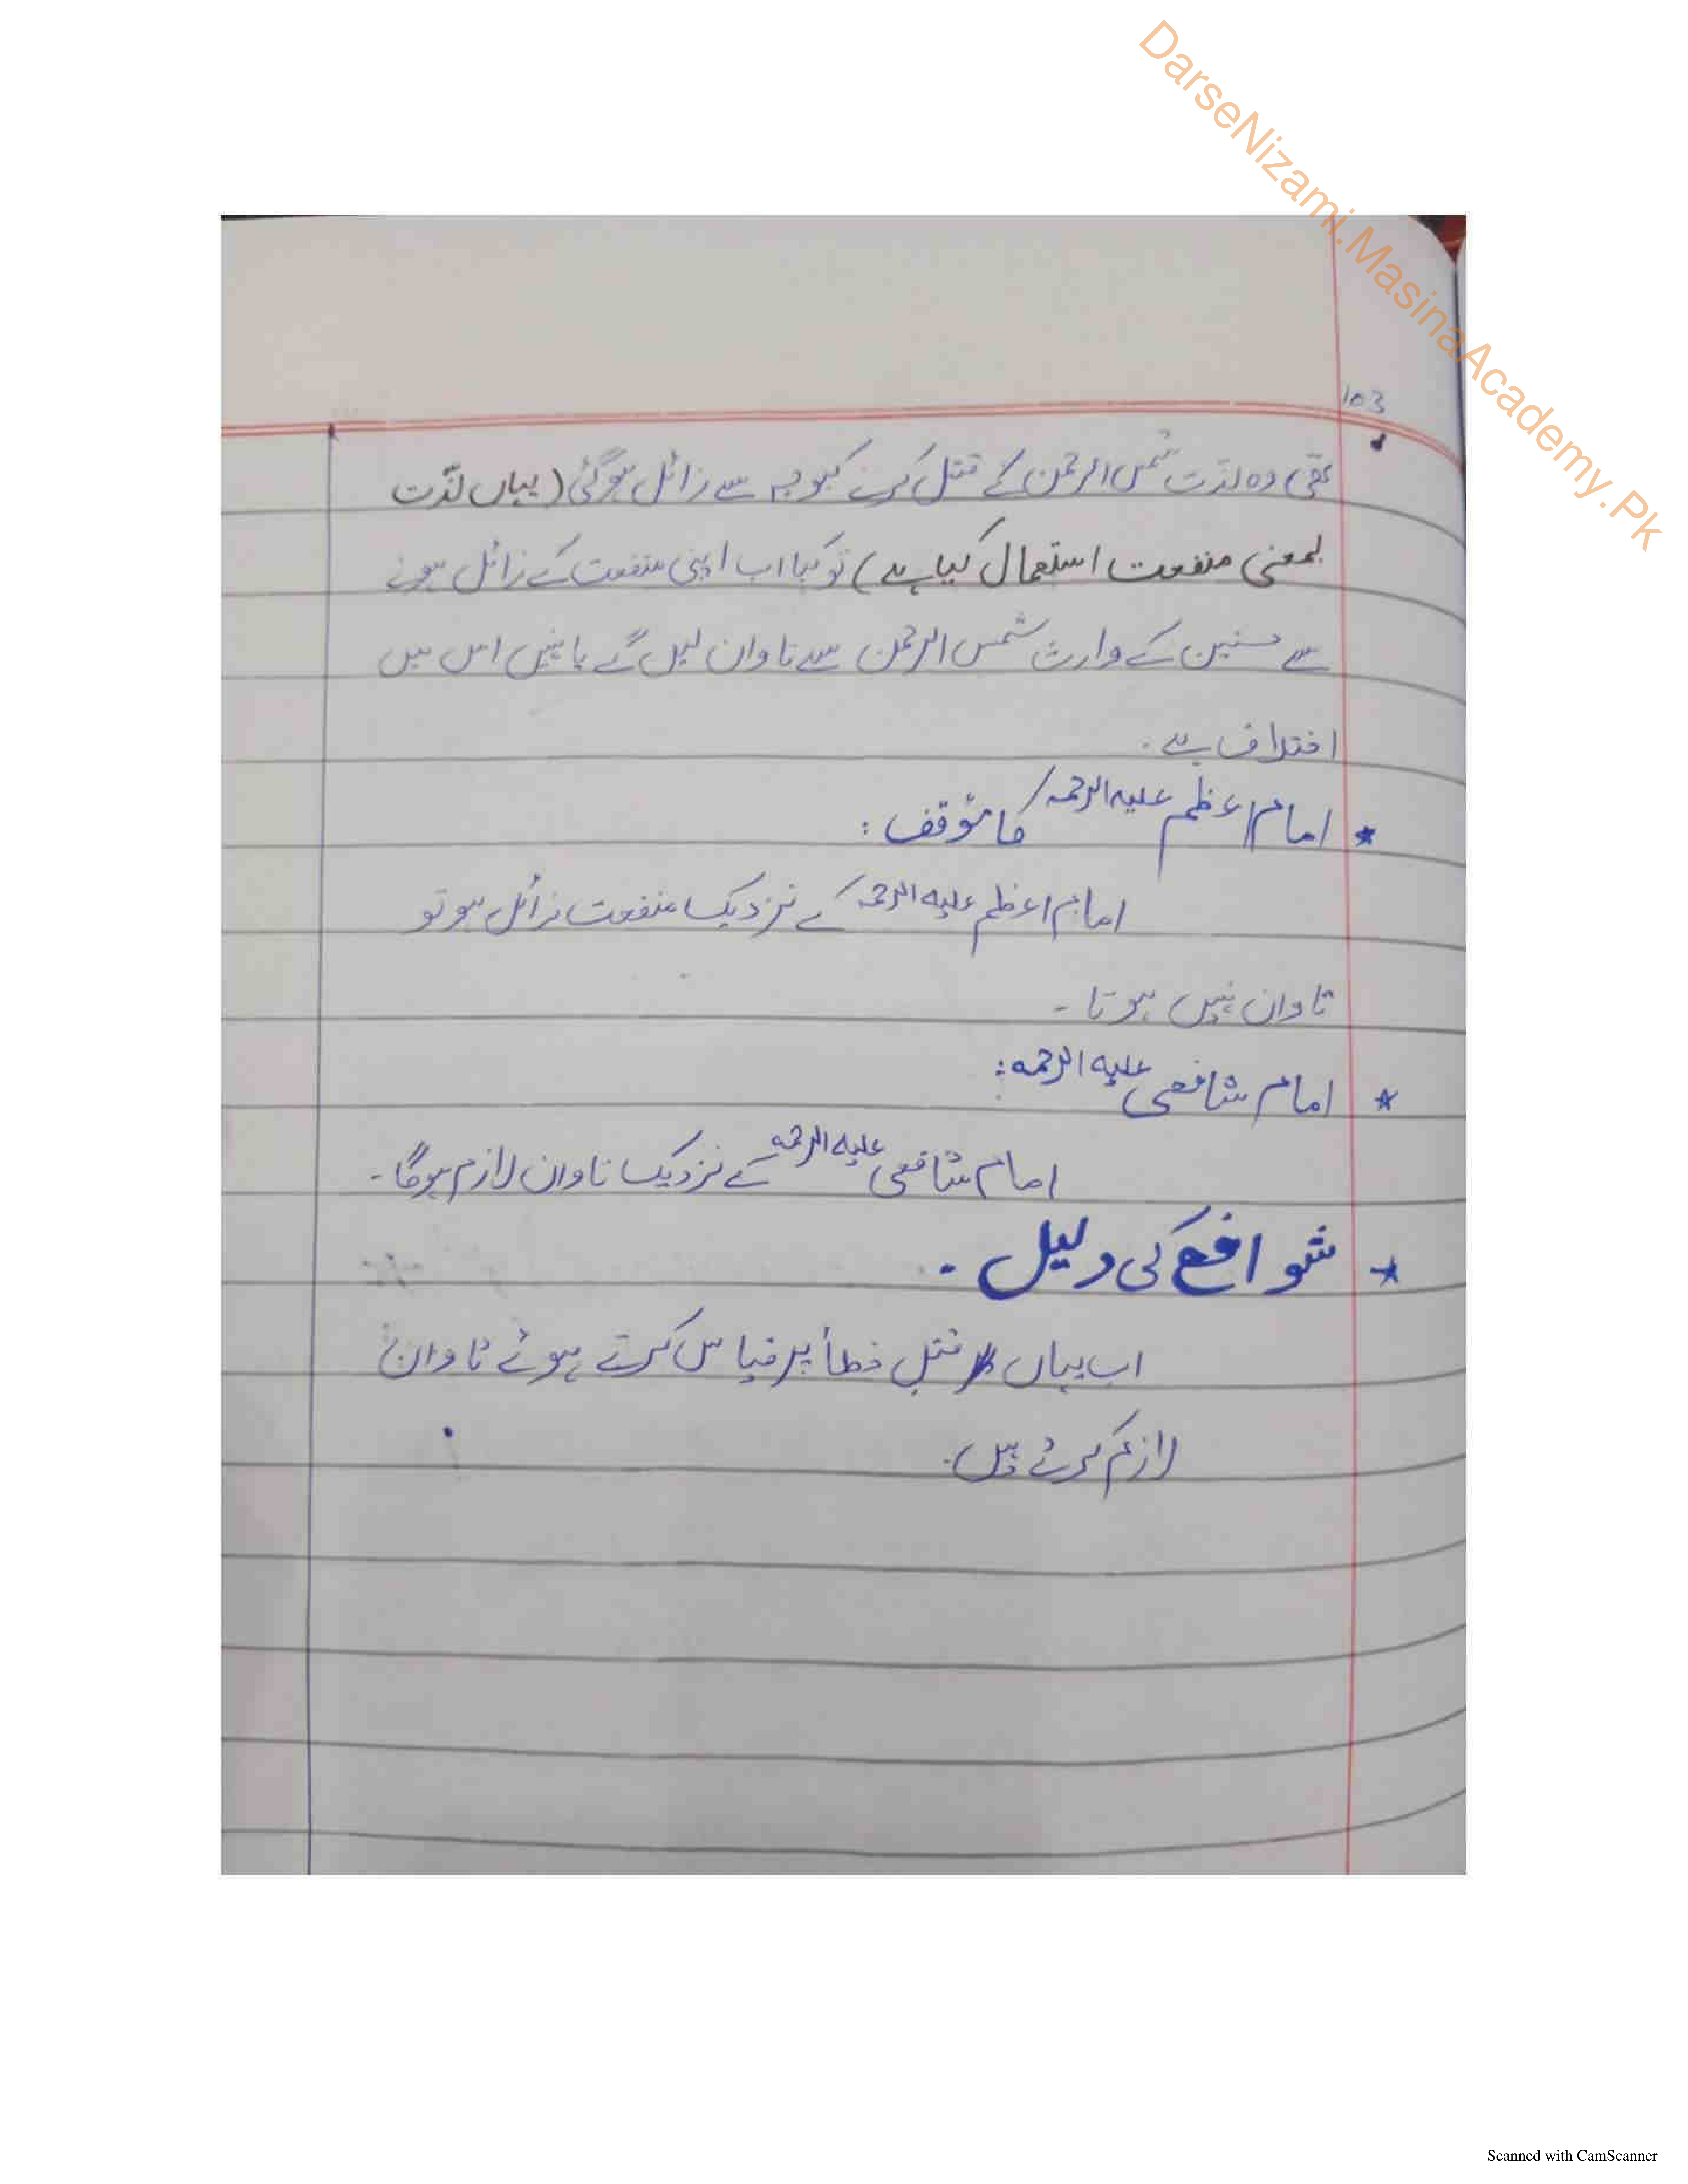 DarseNizami.MasinaAcademy.Pk
103
تھی وہ لذّت شمس الرحمن کے قتل کرنے کیوجہ سے زائل ہوگئی (یہاں لذّت
بمعنی منفعت استعمال کیا ہے) تو کیا اب اپنی منفعت کے زائل ہونے
سے حسنین کے وارث شمس الرحمن سے تاوان لیں گے یا نہیں اس میں
اختلاف ہے۔
* امام اعظم علیہ الرحمہ کا مؤقف :
امام اعظم علیہ الرحمہ کے نزدیک منفعت زائل ہو تو
تاوان نہیں ہوتا -
* امام شافعی علیہ الرحمہ :
امام شافعی علیہ الرحمہ کے نزدیک تاوان لازم ہوگا -
* شوافع کی دلیل -
اب یہاں قتلِ خطأ پر قیاس کرتے ہوئے تاوان
لازم کرتے ہیں۔
Scanned with CamScanner